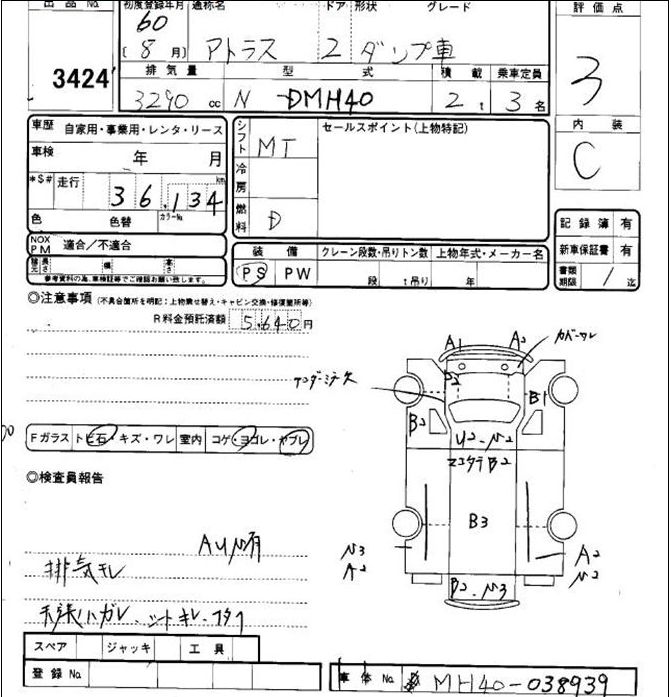 出品 No. 初度登録年月 通称名 ドア 形状 グレード 評価点
60
[8月] アトラス 2 ダンプ車
3424
3
排気量 型式 積載 乗車定員
3290 cc N-DMH40 2 t 3 名
内装
C
車歴 自家用・事業用・レンタ・リース
シフト MT
セールスポイント(上物特記)
車検 年 月
冷房
*$# 走行 36,134 km
燃料 D
色 色替 カラーNo.
記録簿 有
NOX PM 適合/不適合
装備 クレーン段数・吊りトン数 上物年式・メーカー名
新車保証書 有
諸元 長さ 幅 高さ
PS PW 段 t吊り 年
書類期限 / 迄
参考資料の為、車検証等でご確認お願い致します。
◎注意事項 (不具合箇所を明記:上物乗せ替え・キャビン交換・修復箇所等)
R料金預託済額 5,640円
A1 A2 カバーワレ
P2
B1
B2
U2-
B2
Fガラス トビ石・キズ・ワレ 室内 コゲ・ヨゴレ・ヤブレ
◎検査員報告
B3
A2
A2
排気モレ
B2
スペア ジャッキ 工具
登録 No. 車体 No. MH40-038939